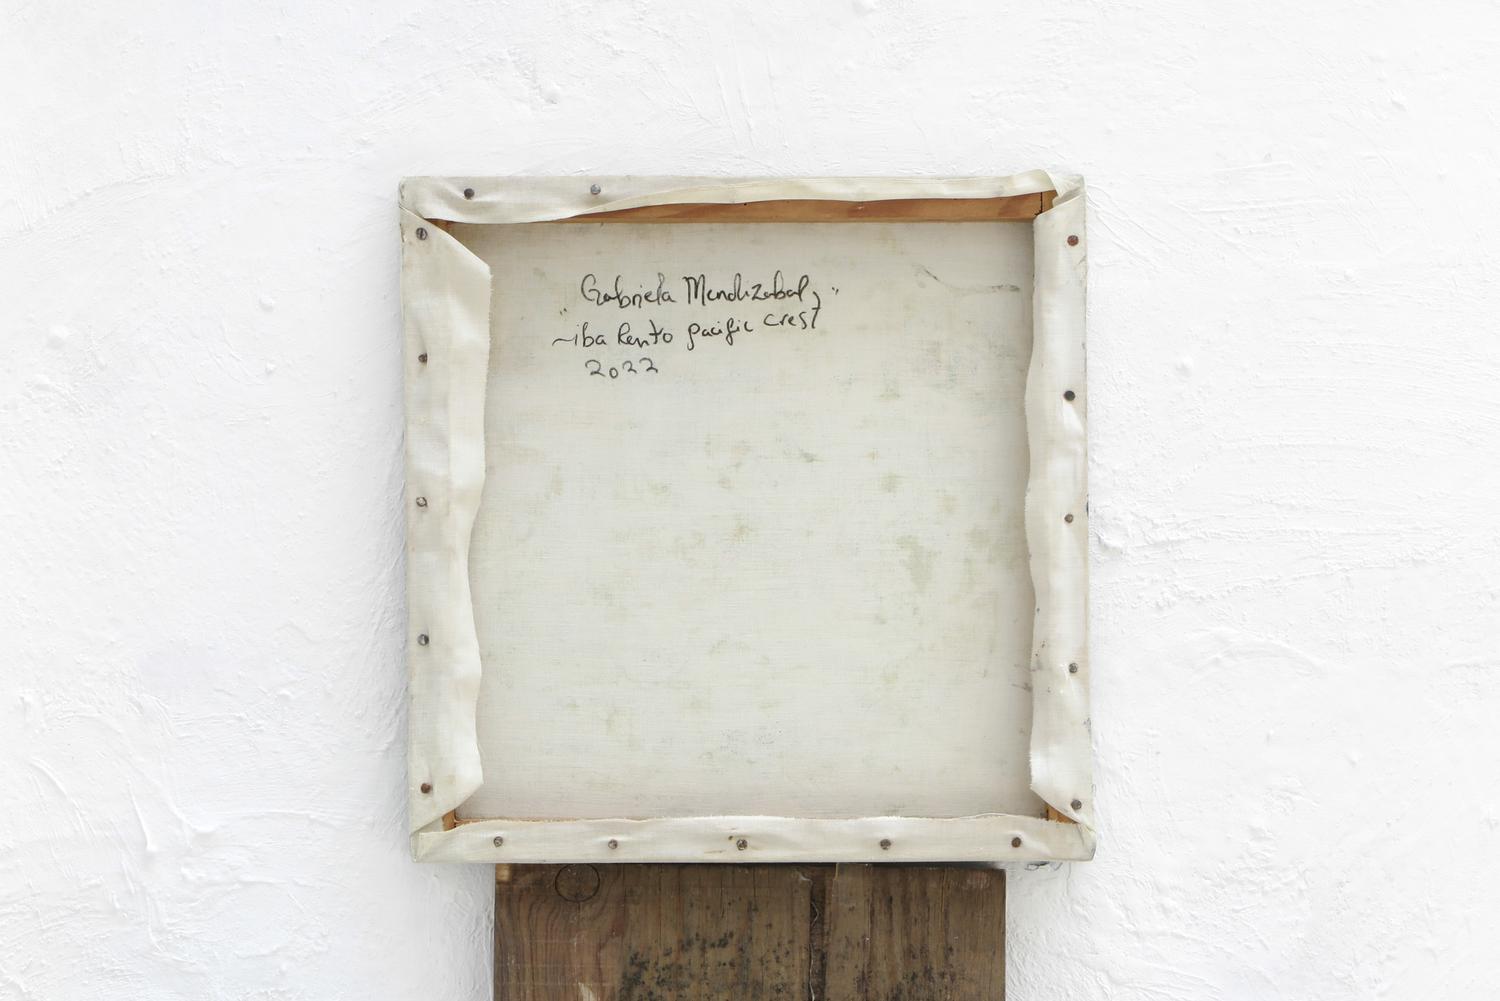 Gabriela Mendizabal, "
"~iba Rento pacific crest
2022